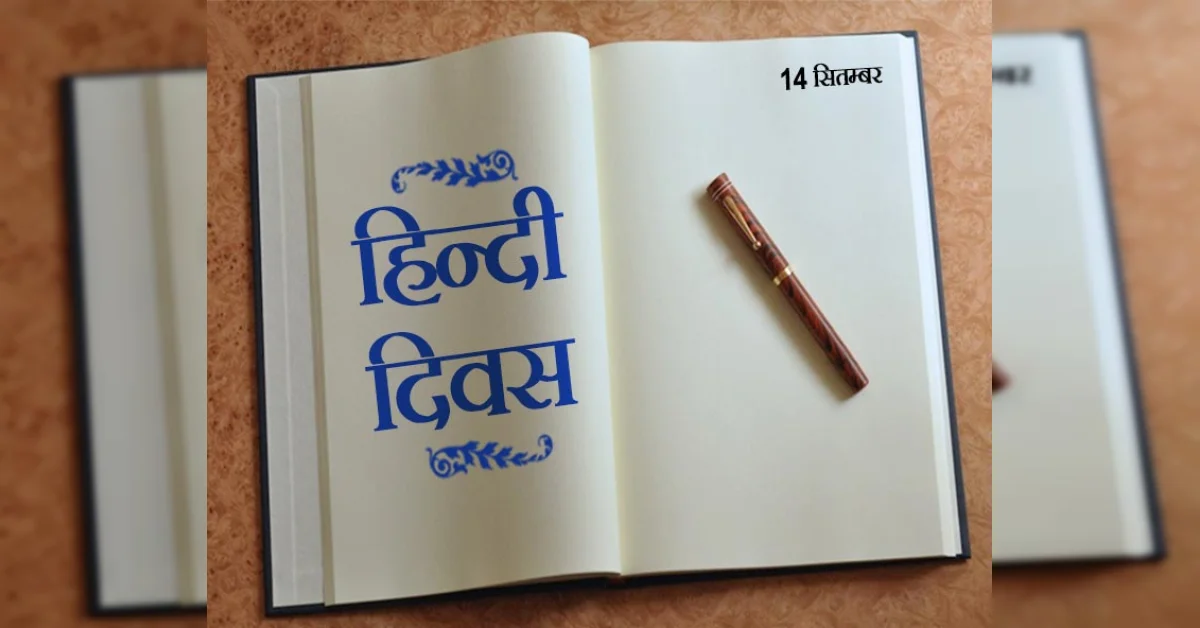 हिन्दी
दिवस
14 सितम्बर